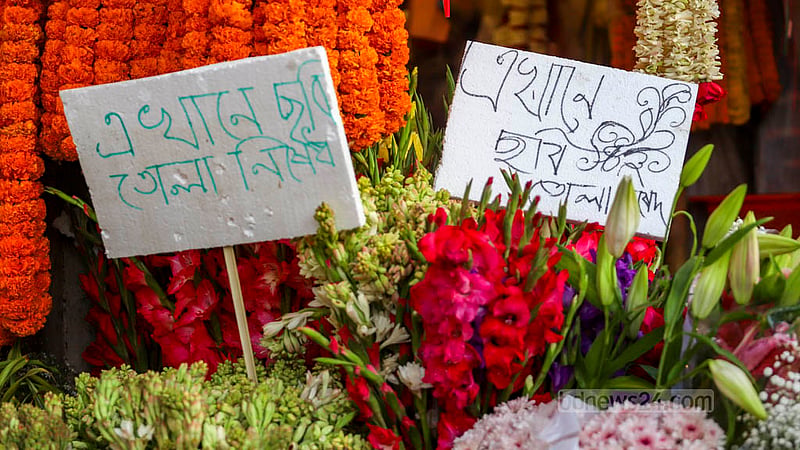 এখানে ছবি
তোলা নিষেধ
এখানে
ছবি
তোলা
bdnews24.com